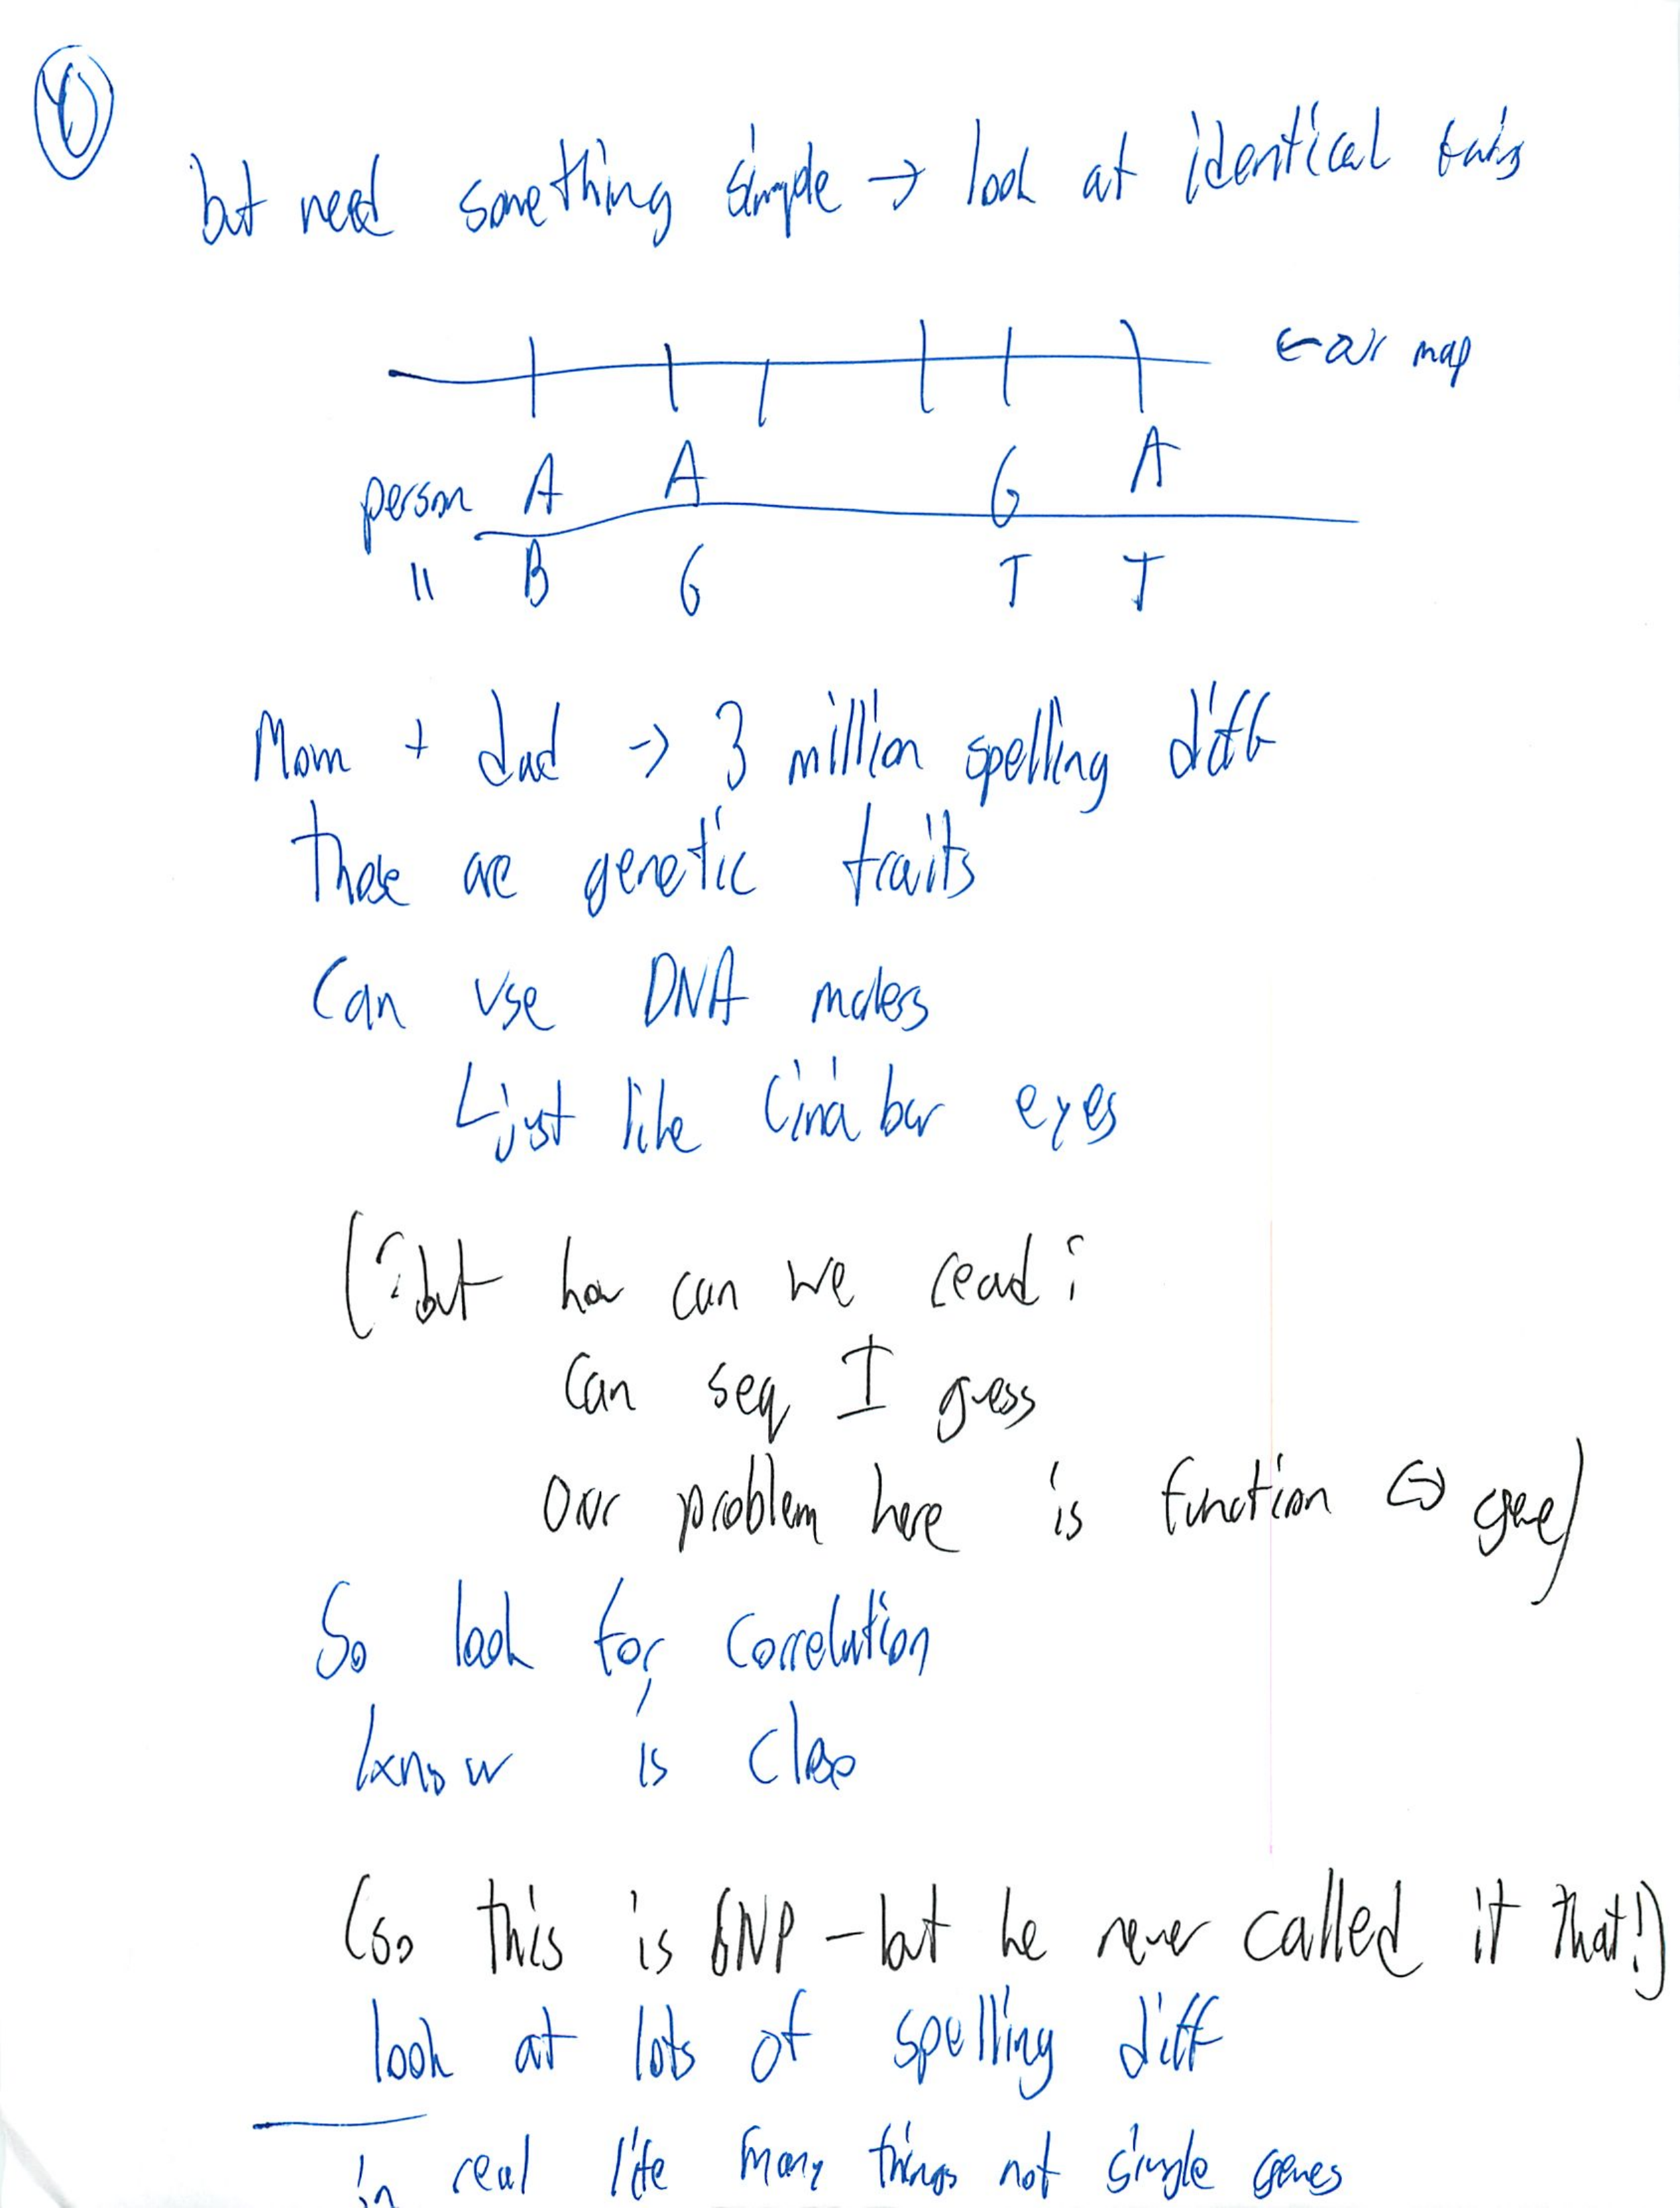 but need something simple → look at identical twins
← our map
person A A G A
" B G T T
Mom + dad → 3 million spelling diff
These are genetic traits
Can use DNA makers
↳ just like Cinabar eyes
(? but how can we read ?
Can seq I guess
Our problem here is function ↔ gene)
So look for correlation
know is close
(so this is SNP - but he never called it that!)
look at lots of spelling diff
in real life many things not single genes